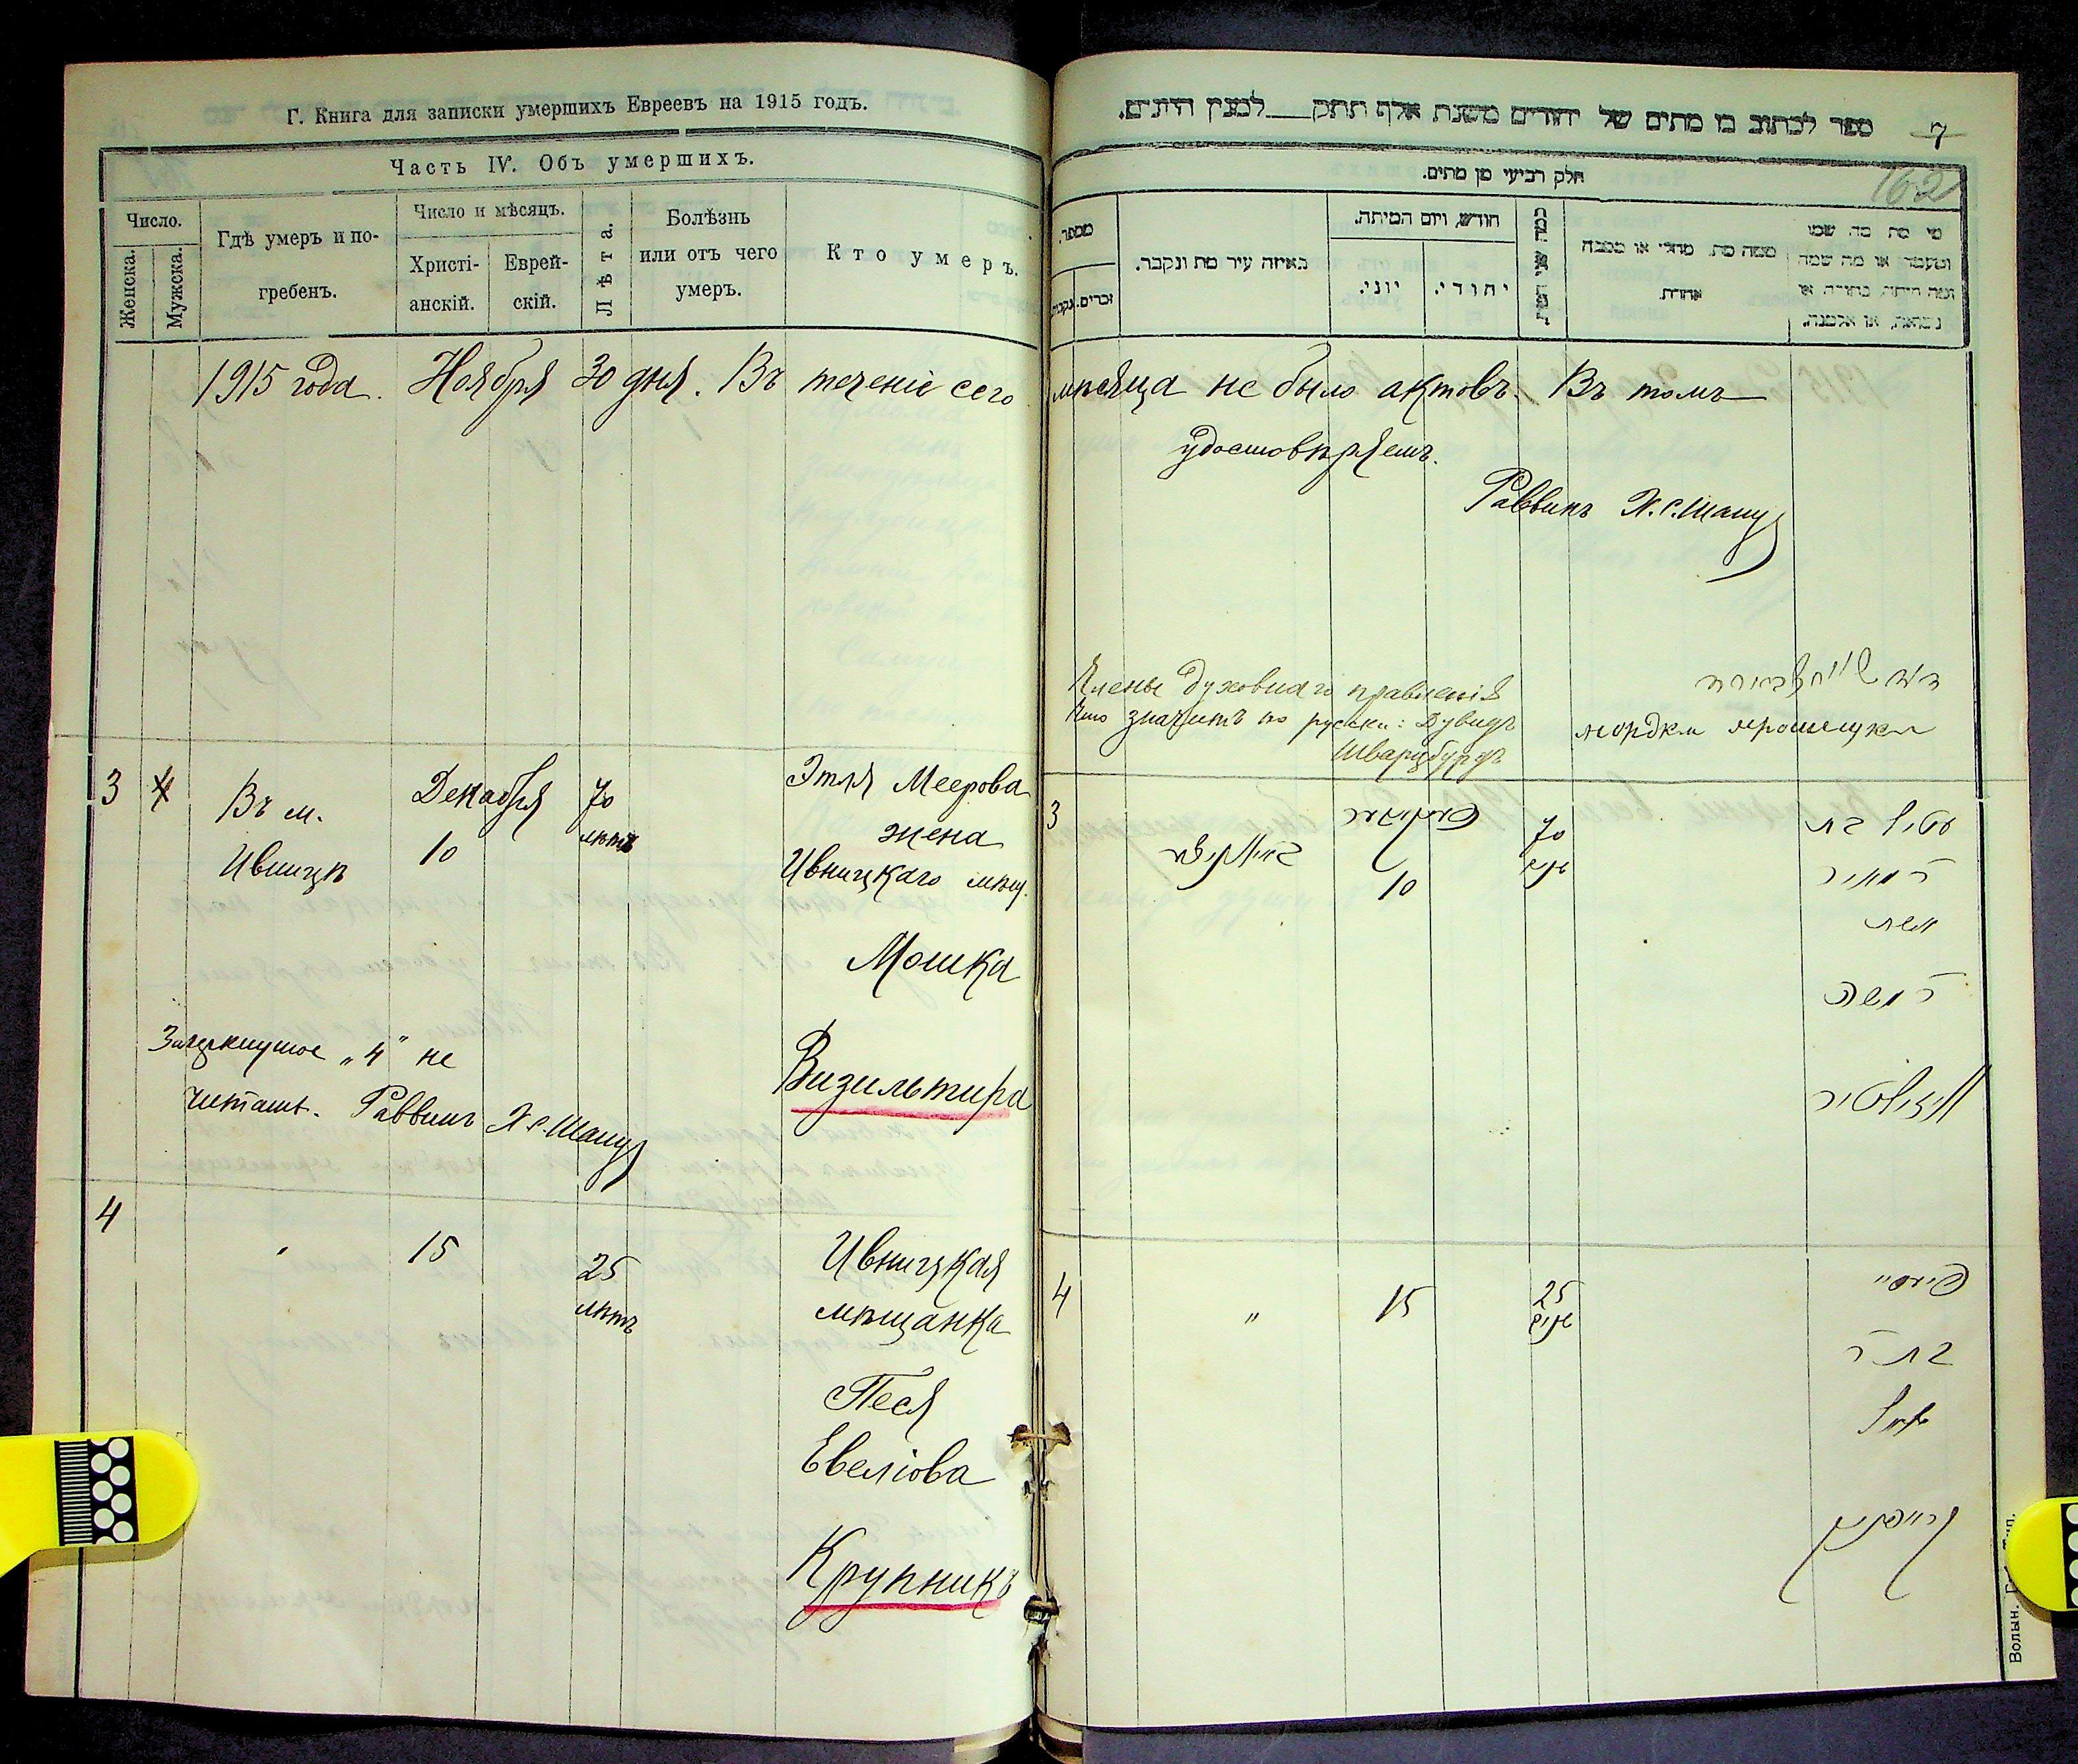 Г. Книга для записки умершихъ Евреевъ на 1915 годъ.
Часть IV. Объ умершихъ.
Число.
Женска.
Мужска.
Гдѣ умеръ и по-
гребенъ.
Число и мѣсяцъ.
Христі-
анскій.
Еврей-
скій.
Лѣта.
Болѣзнь
или отъ чего
умеръ.
Кто умеръ.
1915 года. Ноября 30 дня. Въ теченіе сего
3 4
Въ м.
Ивницѣ
Декабря
10
70
лѣтъ
Этля Меерова
жена
Ивницкаго мѣщ.
Мошка
Визильтира
Зачеркнутое „4" не
читать. Раввинъ Х. С. Шапу
4
15
25
лѣтъ
Ивницкая
мѣщанка
Песя
Евеліова
Крупникъ
ספר לכתוב בו מתים של יהודים משנת אלף תתק___למנין היונים.
7
162
חלק רביעי מן מתים.
מספר.
זכרים.
נקבות
באיזה עיר מת ונקבר.
חודש, ויום המיתה.
יוני.
יהודי.
ממה מת. מחלי או מסבה
אחרת.
מי מת מה שמו
ומעמד או מה שמה
ומה היתה, בתולה או
נשואה, או אלמנה.
мѣсяца не было актовъ. Въ томъ
удостовѣряемъ.
Раввинъ Х. С. Шапу
Члены духовнаго правленія
что значитъ по русски: Дувидъ
Шварцбурдъ
3
דעקאבער
10
70
שנים
עטיל בת
ר מאיר
אשת
ר משה
וויזילטיר
4
"
15
25
שנים
פעסי
בת ר
קרופניק
Волын.